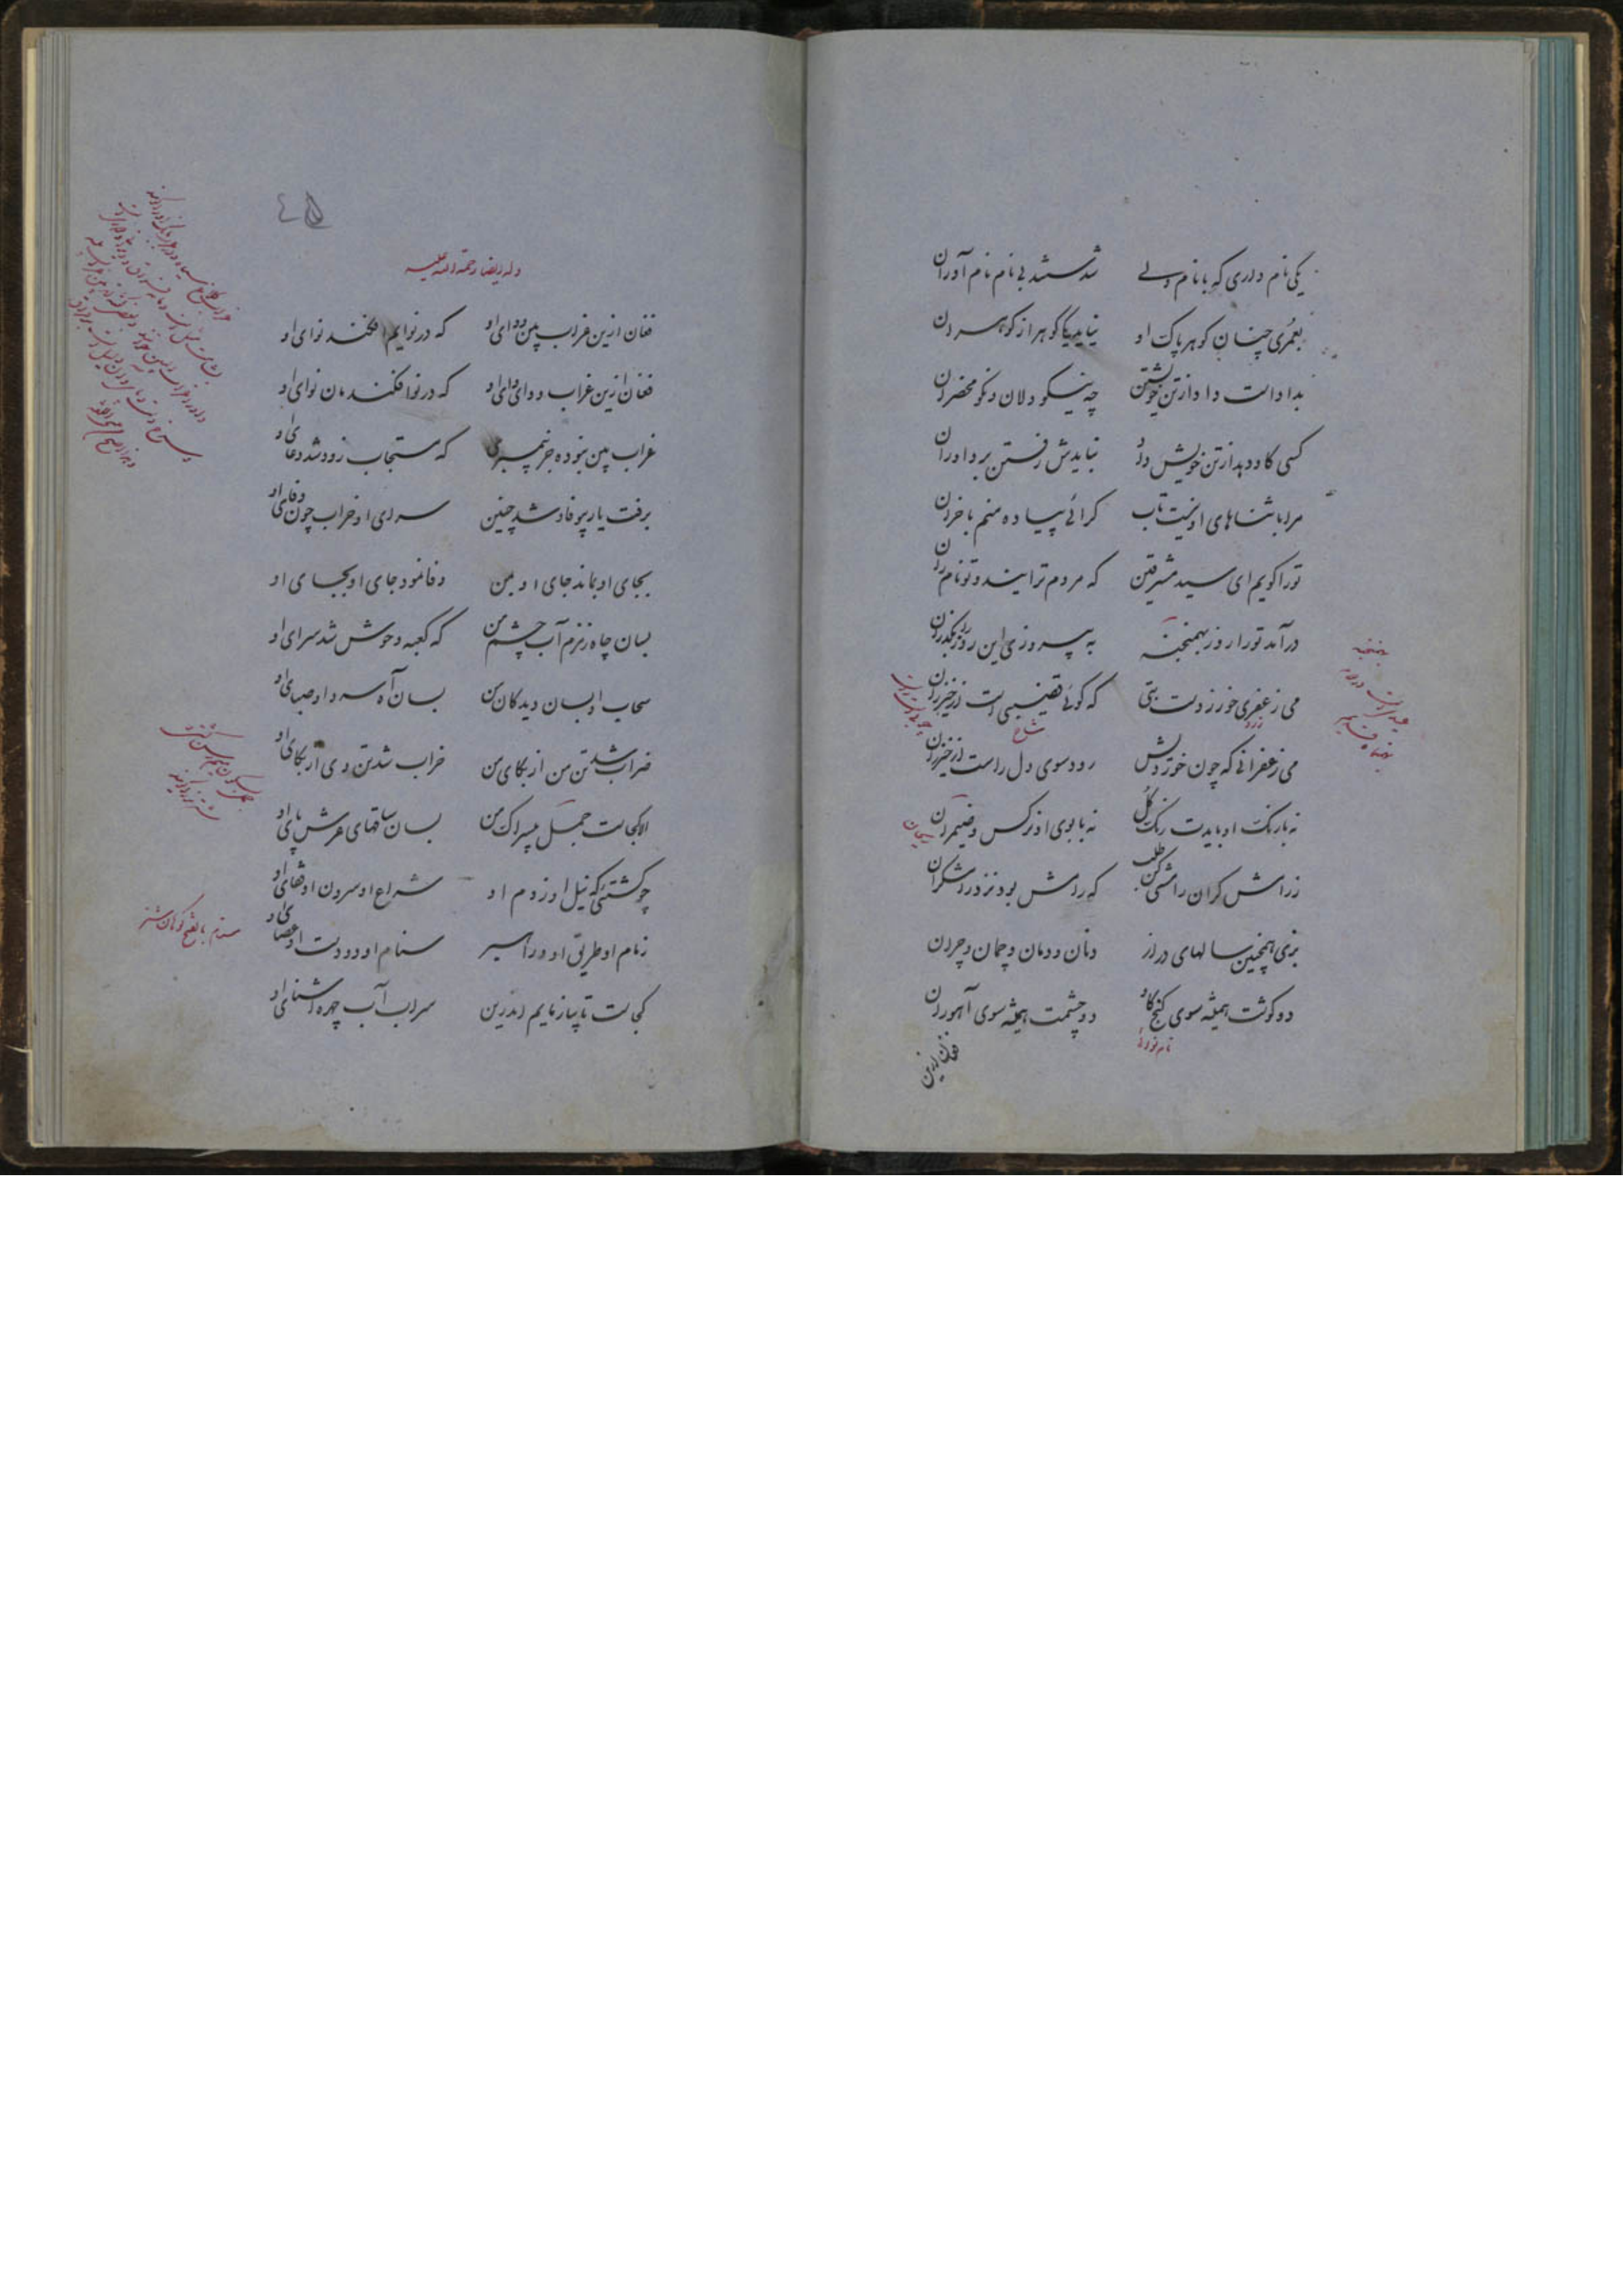 یکی نام داری که با نام ولے شدستند بی نام نام آوران
بعمری چنان گوهر پاک او نیاید یکی گوهر از گوهران
بداد است داد از تن خویشتن چه نیکو دلان و نکو محضران
کسی کاو دهد از تن خویش داد نبایدش رفتن بر داوران
مرا با ثناهای او نیست تاب کرائی پیاده منم با خران
تو را گویم ای سید مشرقین که مردم ترایند و تو نام ران
درآمد تو را روز بهمنجنه به پیروزی این روز بگذران
می زعفری خور ز دست بتی که گوئی قضیبی است از خیزران
زرد
شاخ
می زعفرانی که چون خوردیش رود سوی دل راست از خیزران
نه با رنگ او بایدت رنگ گل نه با بوی او نرگس و ضیمران
ریحان
ز رامش گران رامشی کن طلب که رامش بود نزد رامشگران
بزی همچنین سالهای دراز دنان و دمان و چمان و چران
دو گوشت همیشه سوی گنج گاو دو چشمت همیشه سوی آهوران
نام نوائی
فغان ازین
بهمنجنه
٤٥
وله ایضا رحمة الله علیه
فغان ازین غراب بین و وای او که در نوا‌یم افکند نوای او
فغان ازین غراب و وای وای او که در نوا فکندمان نوای او
غراب بین نبوده جز پیمبری که مستجاب زود شد دعای او
برفت یار بیوفا و شد چنین سرای او خراب چون وفای او
بجای او بماند جای او بمن وفا نمود جای او بجای او
بسان چاه زمزم آب چشم من که کعبه وحوش شد سرای او
سحاب او بسان دیدگان من بسان آه سرد او صبای او
خراب شد تن من از بکای من خراب شد تن وی از بکای او
الا کجاست جمل بیسراک من بسان ساقهای عرش پای او
چو کشتئی که نیل او ز دم او شراع او سرون او قفای او
زمام او طریق او و راسپر سنام او دو دست او عصای او
سنام بالفتح کوهان شتر
کجاست تا بیازمایم اندرین سراب آب چهره آشنای او